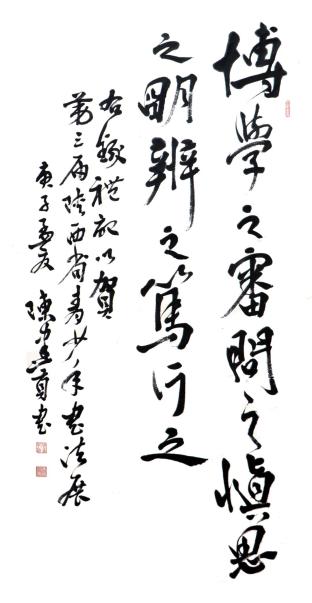 博學之審問之慎思
之明辨之篤行之
右錄禮記以賀
第三屆陝西省青少年書法展
庚子孟夏 陳建貢書